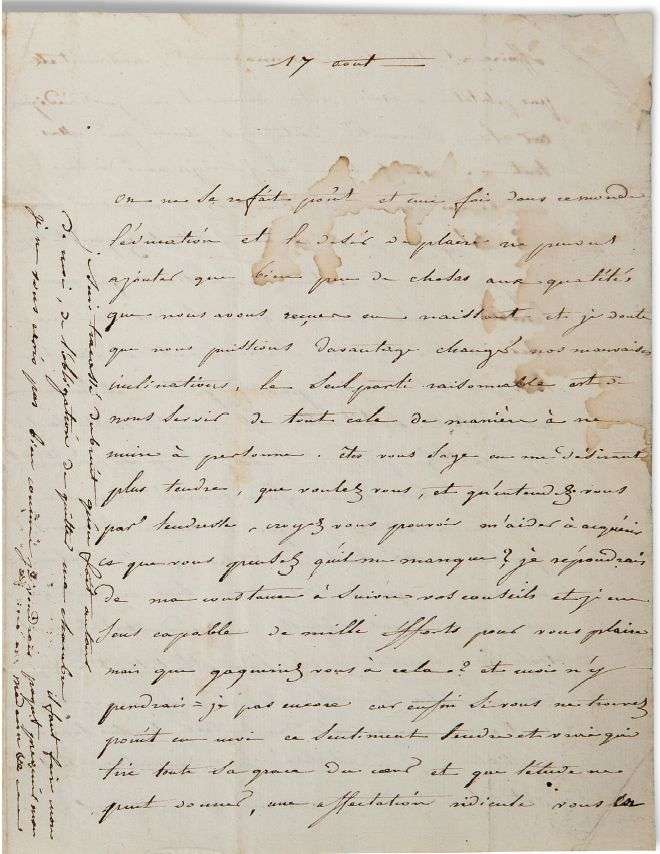 17 aout
on ne se refait point et une fois dans ce monde
l'éducation et le desir de plaire ne peuvent
ajouter que bien peu de choses aux qualités
que nous avons reçues en naissant et je doute
que nous puissions davantage changer nos mauvaises
inclinations, le seul parti raisonnable est de
nous servir de tout cela de manière à ne
nuire à personne. etes vous sage en me désirant
plus tendre, que voulez vous, et qu'entendez vous
par tendresse, croyez vous pouvoir m'aider à acquérir
ce que vous pensez qu'il me manque? je répondrais
de ma constance à suivre vos conseils et je me
sens capable de mille efforts pour vous plaire
mais que gagneriez vous à cela? et moi n'y
perdrais=je pas encore car enfin si vous ne trouvez
point en moi ce sentiment tendre et vrai qui
tire toute sa grace du cœur et que l'étude ne
peut donner, une affectation ridicule vous en
je suis tracassé du bruit qu'on fait autour
de moi, de l'obligation de quitter ma chambre
il faut finir mon
je ne vous verrai pas bien